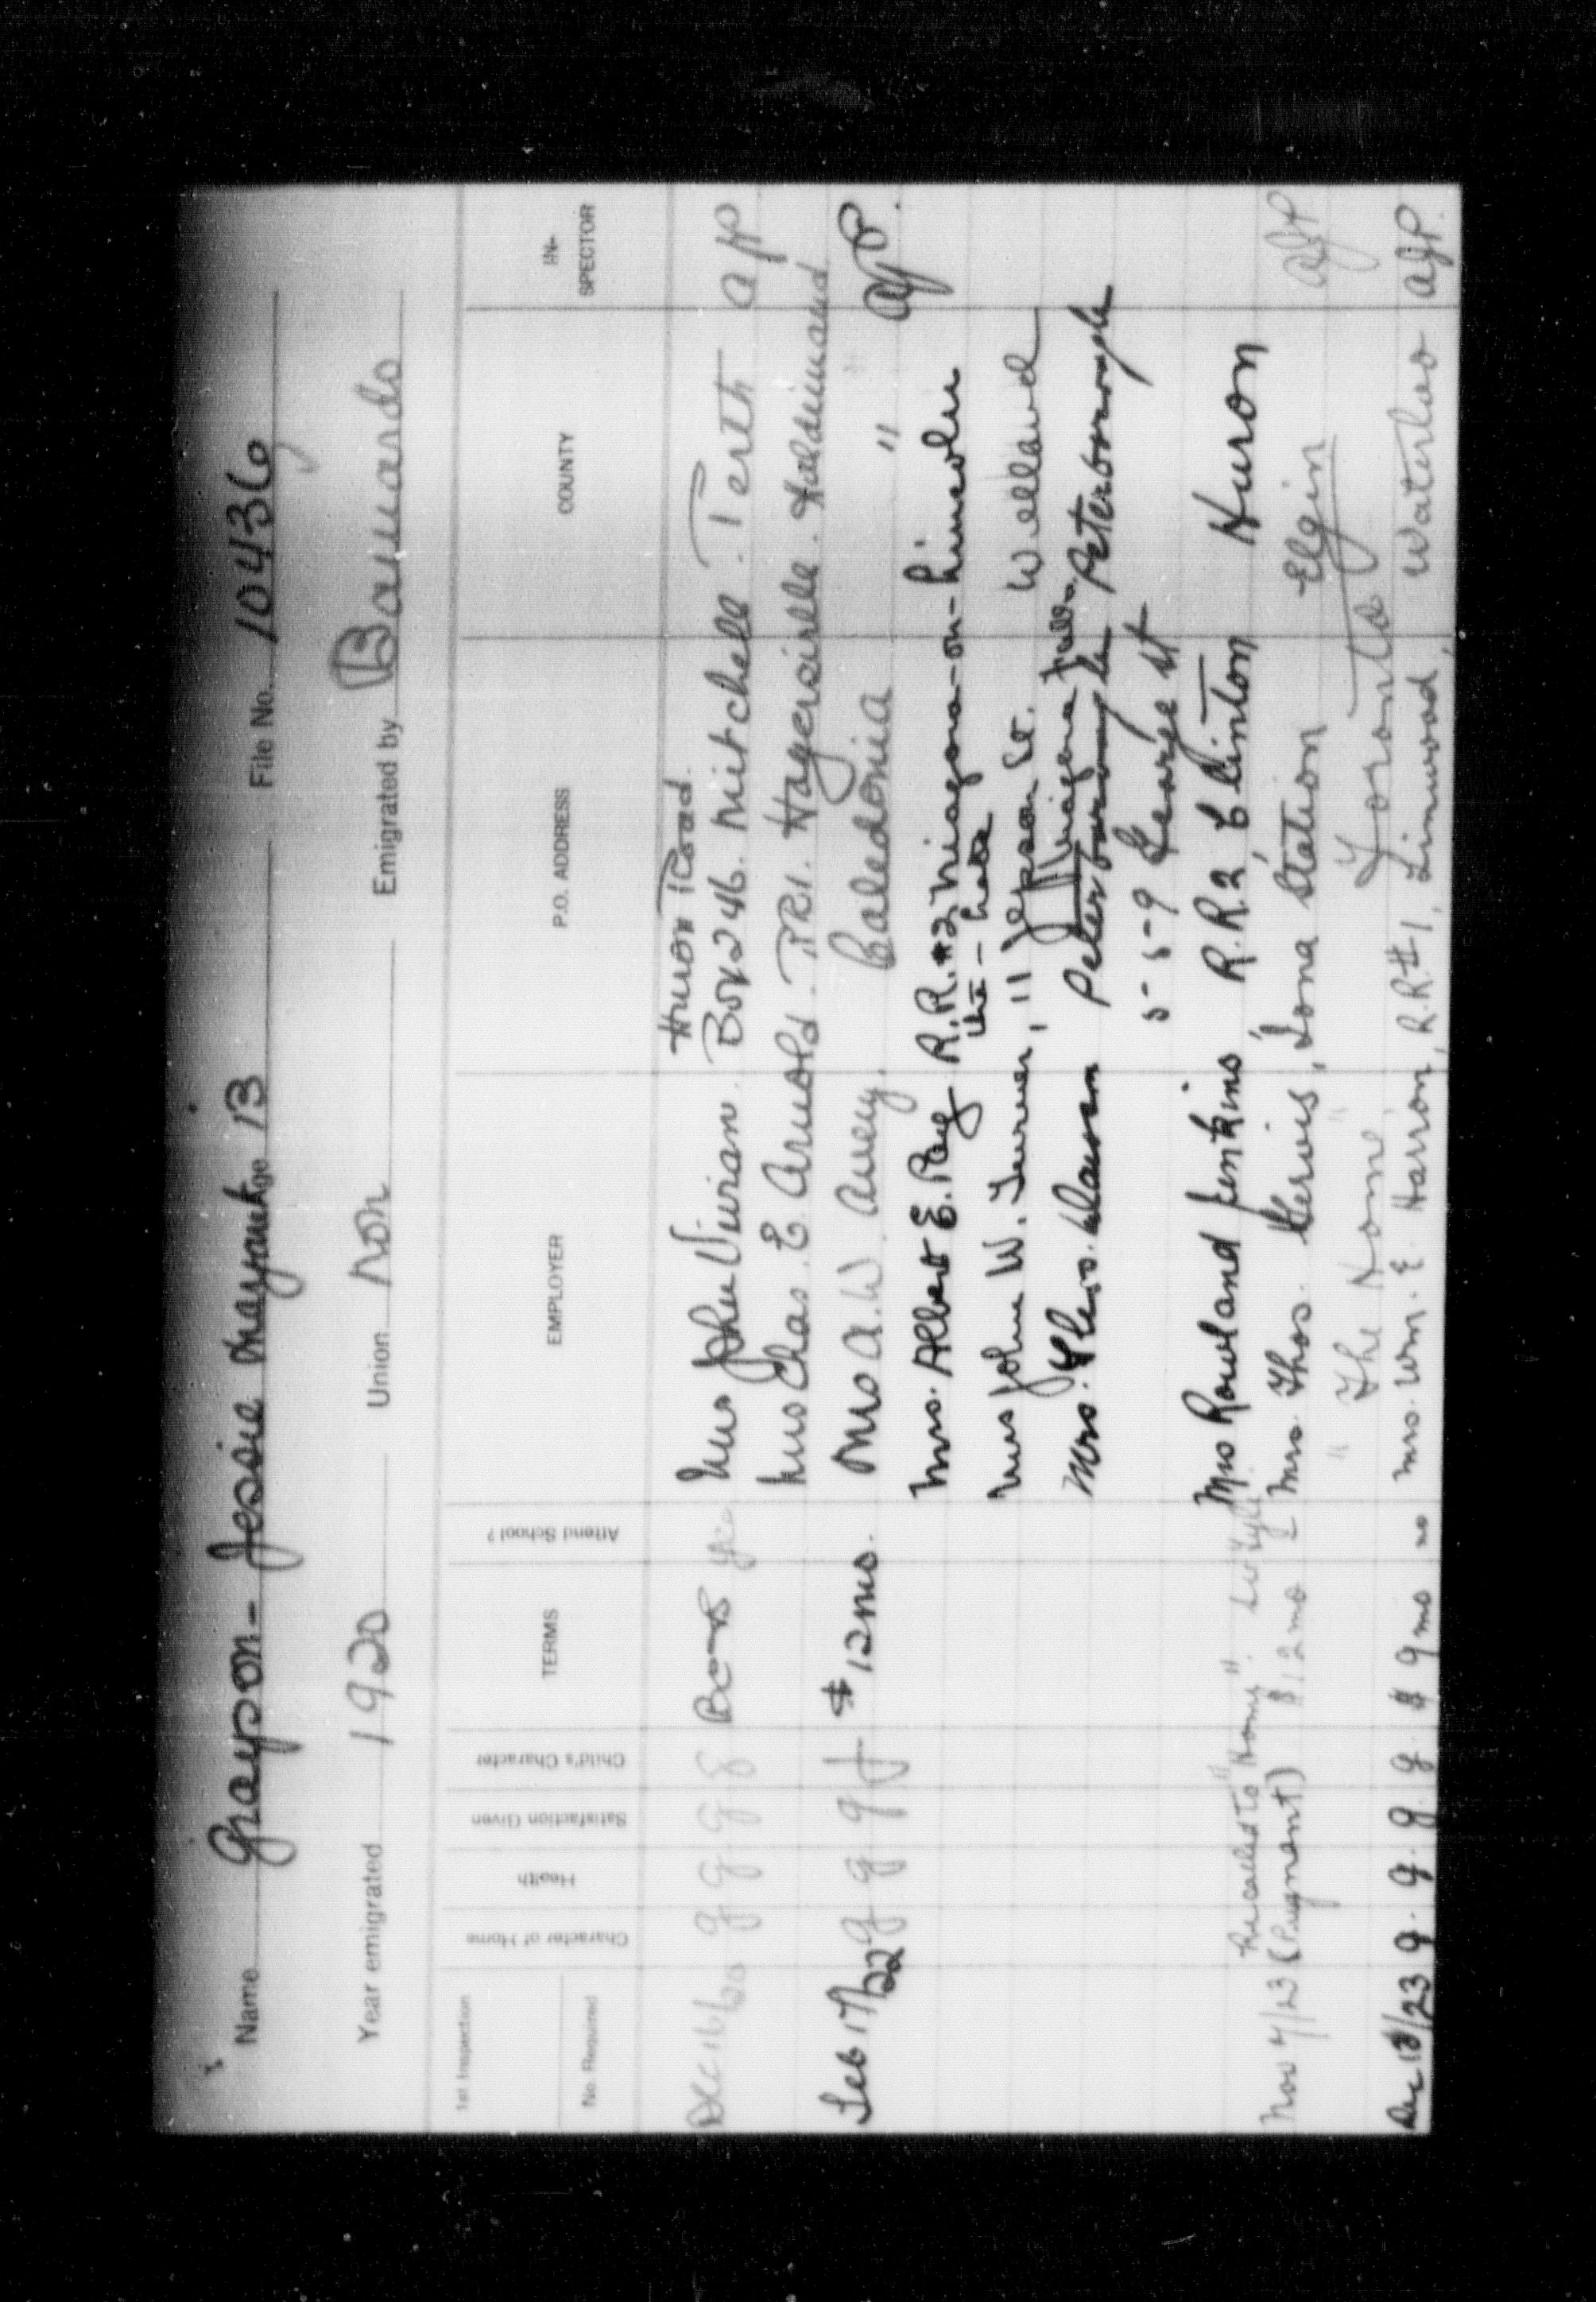 Name Grayson - Jessie Margaret Age 13 File No. 10436
Year emigrated 1920 Union Non Emigrated by Barnardo
1st Inspection
No. Required
Character of Home
Health
Satisfaction Given
Child's Character
TERMS
Attend School?
EMPLOYER
P.O. ADDRESS
COUNTY
IN-SPECTOR
Huron Road
Dec 16/20 g g g g B yes Mrs John Vivian. Box 246. Mitchell. Perth
Mrs Chas. E. Arnold. RR1. Hagersville. Haldimand
Feb 17/22 g g g f $12 mo. Mrs A.W. Caledonia "
Mrs. Albert E. Ray R.R.#2 Niagara-on- Lincoln
the-Lake
Mrs John W. Turner, 11 Jepson St. Welland
Niagara Falls
Mrs. Peterborough Peterborough
559 George St
Mrs Rowland Jenkins, R.R.2, Clinton Huron
Recalled to "Home".
Nov 7/23 $12 mo Mrs. Thos. Iona Station Elgin AJP
" The Home " Toronto
Dec /23 g. g. g. g. $9 mo no Mrs. Wm. E. R.R#1, Linwood, Waterloo AJP.